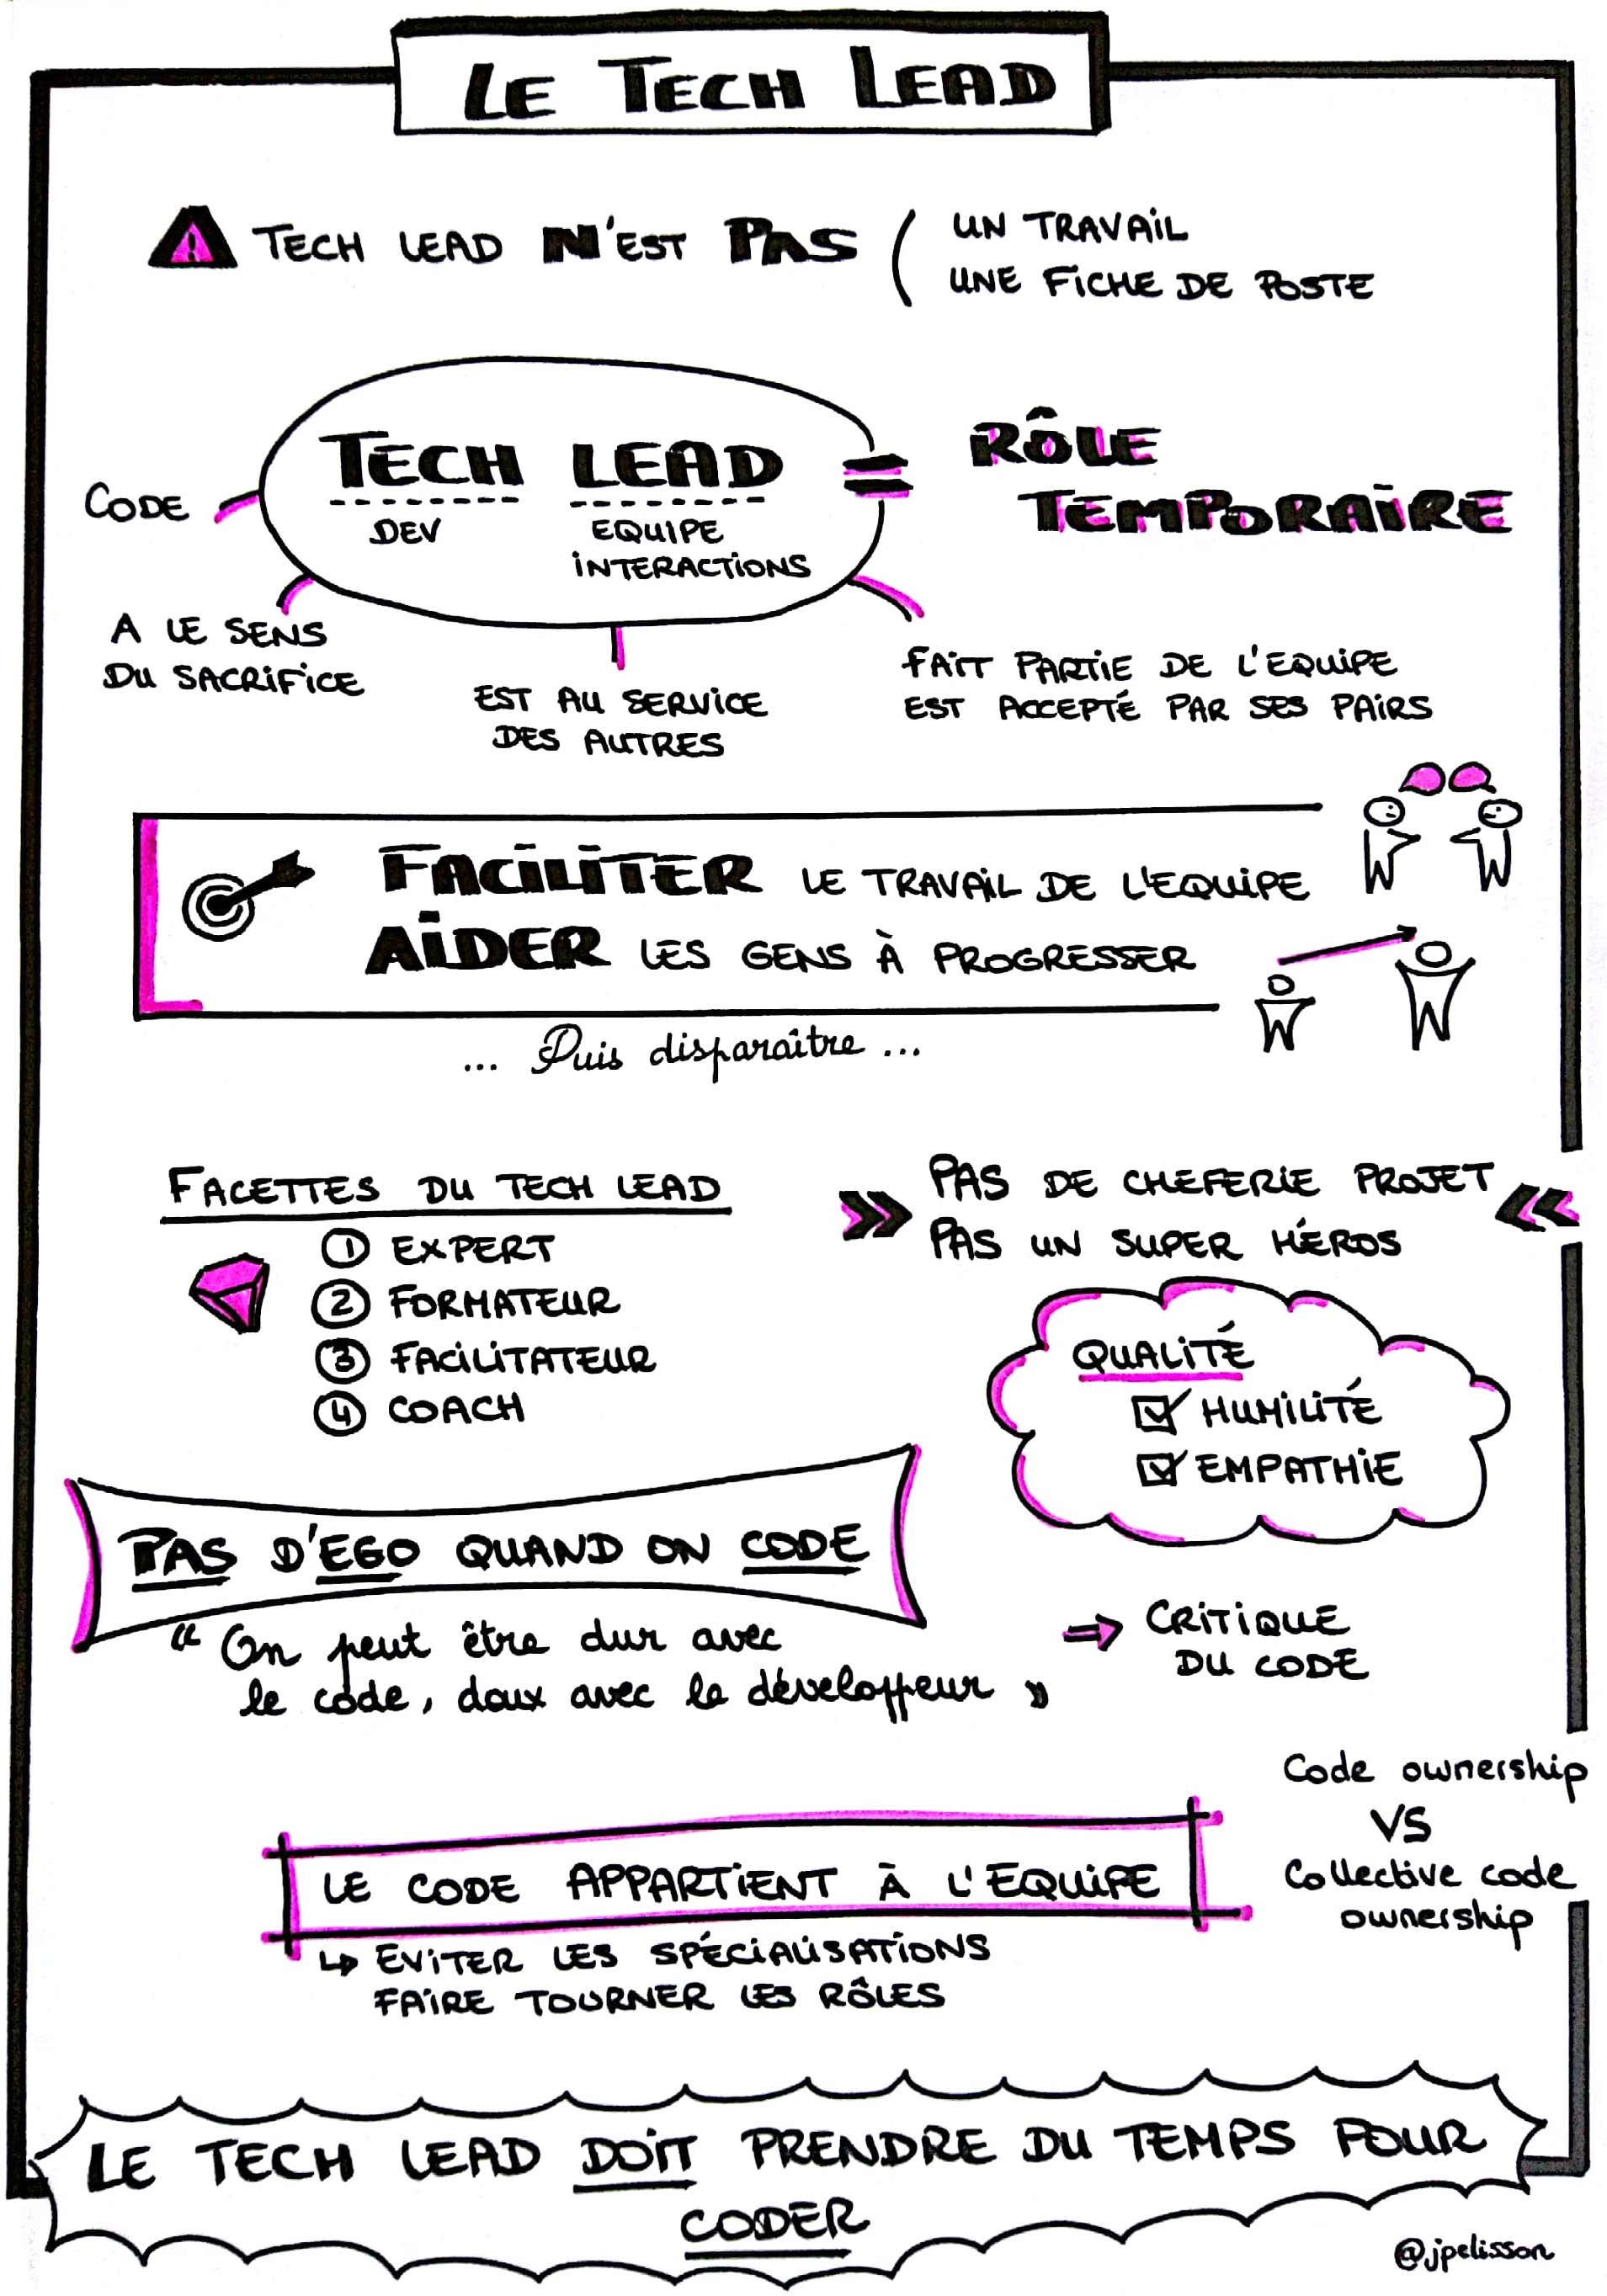 LE TECH LEAD
TECH LEAD N'EST PAS
UN TRAVAIL
UNE FICHE DE POSTE
TECH LEAD
DEV
EQUIPE
INTERACTIONS
=
RÔLE
TEMPORAIRE
CODE
A LE SENS
DU SACRIFICE
EST AU SERVICE
DES AUTRES
FAIT PARTIE DE L'EQUIPE
EST ACCEPTÉ PAR SES PAIRS
FACILITER LE TRAVAIL DE L'EQUIPE
AIDER LES GENS À PROGRESSER
... Puis disparaître ...
FACETTES DU TECH LEAD
1 EXPERT
2 FORMATEUR
3 FACILITATEUR
4 COACH
PAS DE CHEFERIE PROJET
PAS UN SUPER HÉROS
QUALITÉ
HUMILITÉ
EMPATHIE
PAS D'EGO QUAND ON CODE
“ On peut être dur avec
le code, doux avec le développeur »
⇒ CRITIQUE
DU CODE
Code ownership
VS
Collective code
ownership
LE CODE APPARTIENT À L'EQUIPE
↳ EVITER LES SPÉCIALISATIONS
FAIRE TOURNER LES RÔLES
LE TECH LEAD DOIT PRENDRE DU TEMPS POUR
CODER
@jpelisson